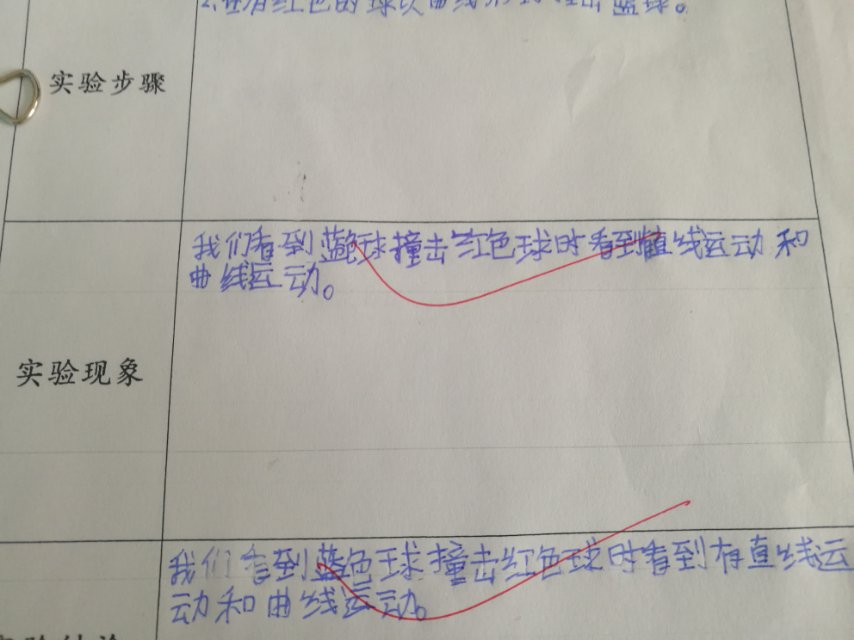 2.在有红色的球以曲线形式撞击蓝球。
实验步骤
我们看到蓝色球撞击红色球时看到植线运动和
曲线运动。
实验现象
我们看到蓝色球撞击红色球时看到有直线运
动和曲线运动。